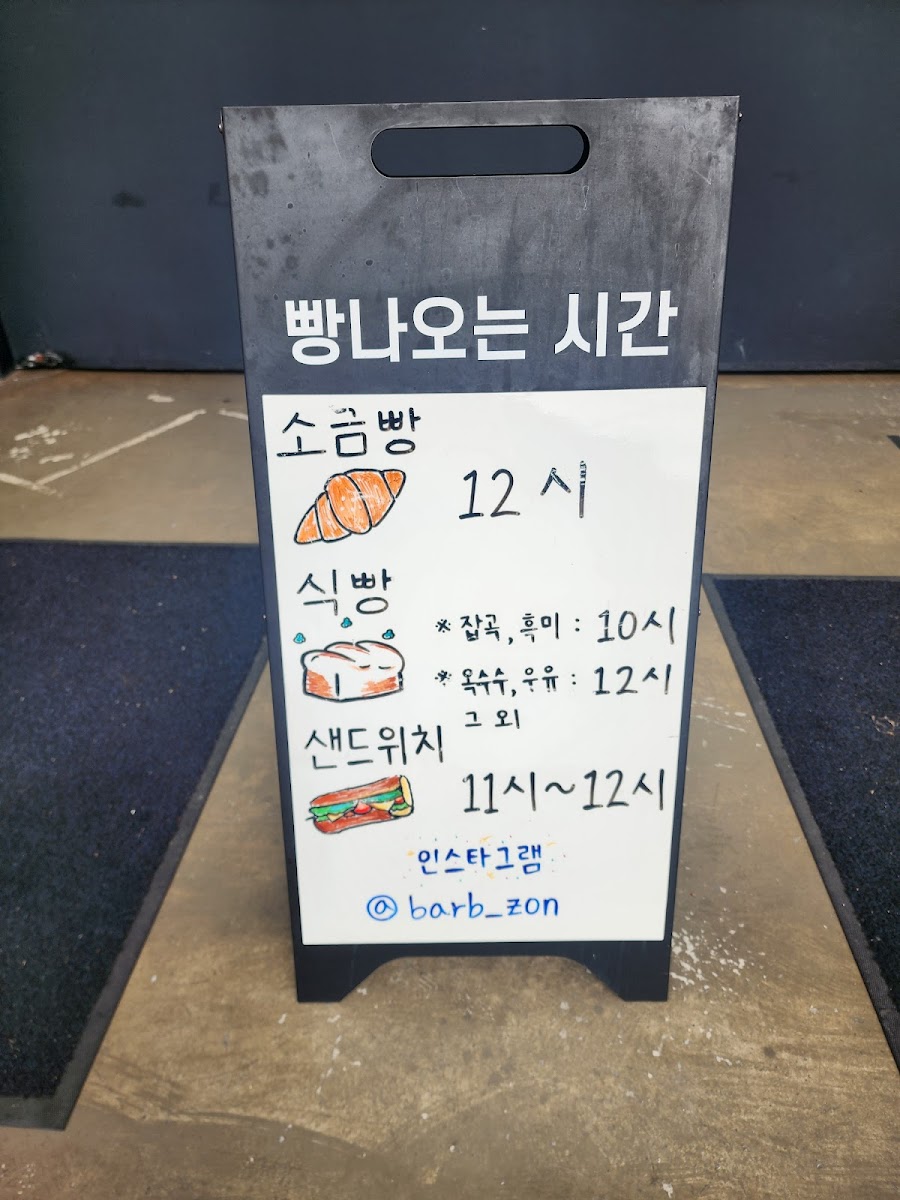 빵나오는 시간
소금빵
12시
식빵
※ 잡곡, 흑미 : 10시
※ 옥수수, 우유 : 12시
그 외
샌드위치
11시~12시
인스타그램
@barb_zon